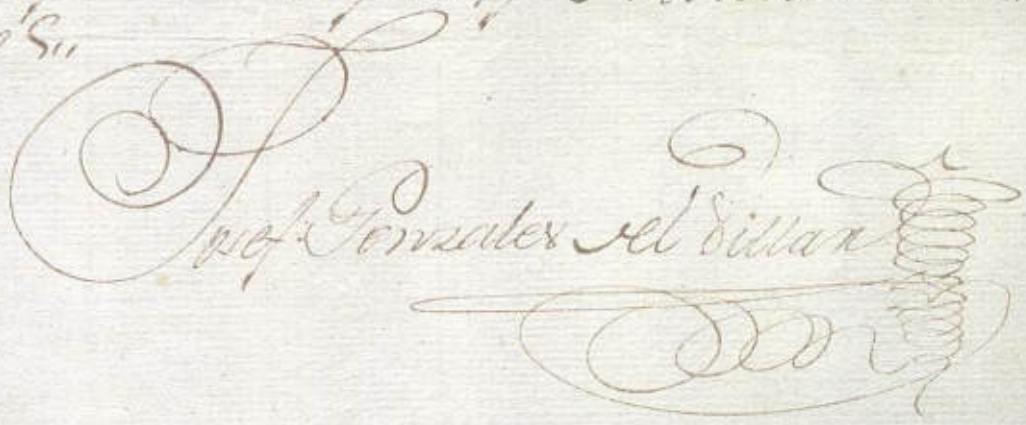 Josef Gonzalez del Villar